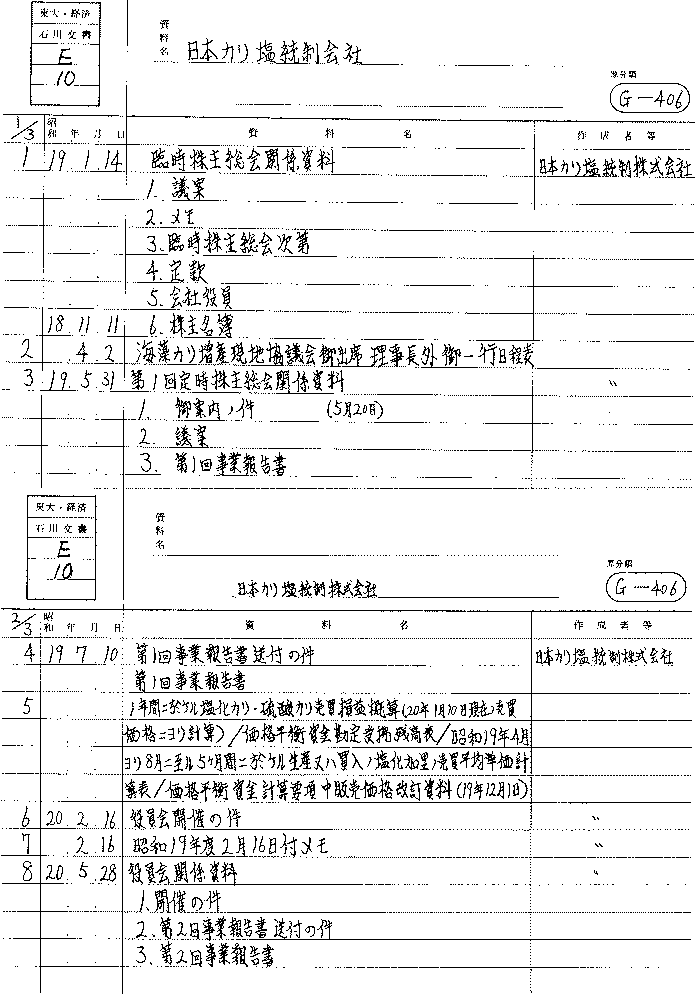 東大・経済
石川文書
E
10
資料名 日本カリ塩統制会社
原分類
G-406
1/3 昭和 年 月 日 資料名 作成者等
1 19 1 14 臨時株主総会関係資料 日本カリ塩統制株式会社
1. 議案
2. メモ
3. 臨時株主総会次第
4. 定款
5. 会社役員
18 11 11 6. 株主名簿
2 4 2 海藻カリ増産現地協議会御出席 理事長外御一行日程表
3 19 5 31 第1回定時株主総会関係資料 〃
1. 御案内ノ件 (5月20日)
2. 議案
3. 第1回事業報告書
東大・経済
石川文書
E
10
資料名
原分類
日本カリ塩統制株式会社
G-406
2/3 昭和 年 月 日 資料名 作成者等
4 19 7 10 第1回事業報告書送付の件 日本カリ塩統制株式会社
第1回事業報告書
5 1年間ニ於ケル塩化カリ・硫酸カリ売買損益概算(20年1月10日現在)売買
価格ニヨリ計算)/価格平衡資金勘定支払残高表/昭和19年4月
ヨリ8月ニ至ル5ケ月間ニ於ケル生産又ハ買入ノ塩化加里ノ売買平均単価計
算表/価格平衡資金計算要項中販売価格改訂資料(19年12月1日)
6 20 2 16 役員会開催の件 〃
7 2 16 昭和19年度2月16日付メモ 〃
8 20 5 28 役員会関係資料 〃
1. 開催の件
2. 第2回事業報告書送付の件
3. 第2回事業報告書